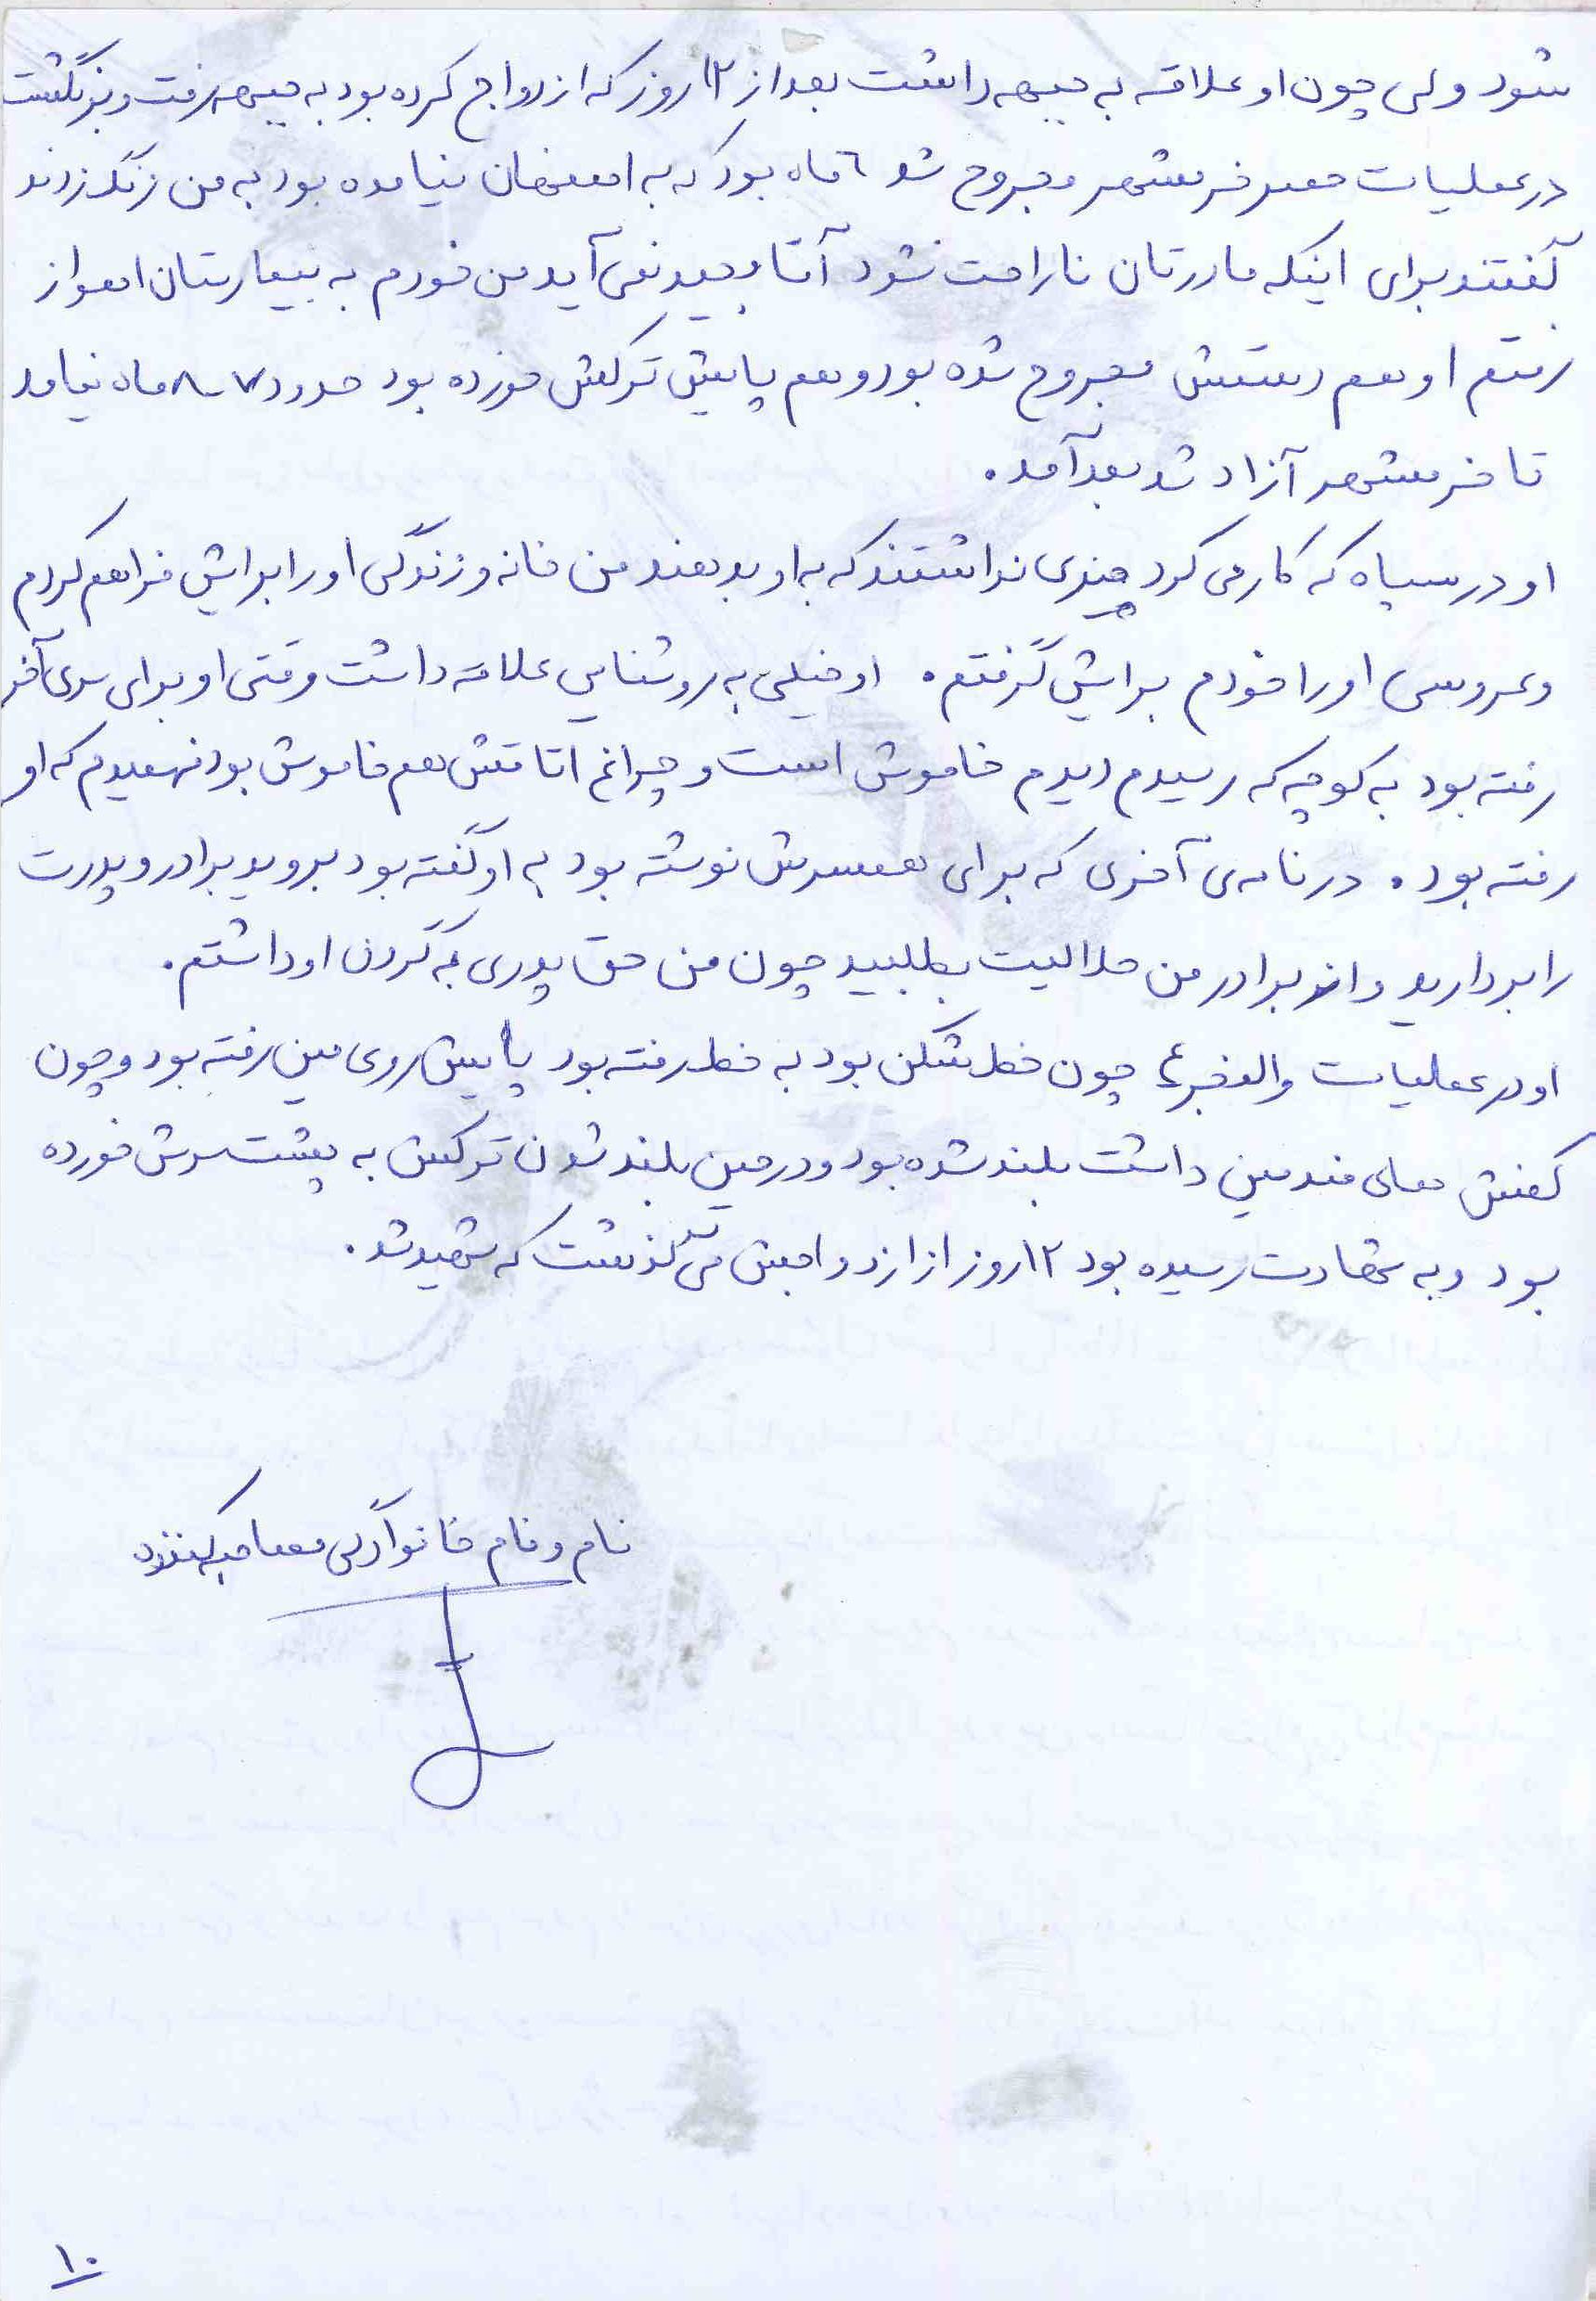 شود ولی چون او علاقه به جبهه داشت بعد از ۱۲ روز که ازدواج کرده بود به جبهه رفت و برنگشت
در عملیات حصر خرمشهر مجروح شد ۶ ماه بود که به اصفهان نیامده بود به من زنگ زدند
گفتند برای اینکه مادرتان ناراحت نشود آقا مجید نمی آید من خودم به بیمارستان اهواز
رفتم او هم دستش مجروح شده بود و هم پایش ترکش خورده بود حدود ۷-۸ ماه نیامد
تا خرمشهر آزاد شد بعد آمد.
او در سپاه که کار می کرد چیزی نداشتند که به او بدهند من خانه و زندگی او را برایش فراهم کردم
و عروسی او را خودم برایش گرفتم. او خیلی به روشنایی علاقه داشت وقتی او برای سری آخر
رفته بود به کوچه که رسیدم دیدم خاموش است و چراغ اتاقش هم خاموش بود فهمیدم که او
رفته بود. در نامه‌ی آخری که برای همسرش نوشته بود به او گفته بود بروید برادر و پدرت
را بردارید و از برادر من حلالیت بطلبید چون من حق پدری به گردن او داشتم.
او در عملیات والفجر ۴ چون خط شکن بود به خط رفته بود پایش روی مین رفته بود و چون
کفش ضد مین داشت بلند شده بود و در حین بلند شدن ترکش به پشت سرش خورده
بود و به شهادت رسیده بود ۱۲ روز از ازدواجش می گذشت که شهید شد.
نام و نام خانوادگی مصاحبه کننده
۱۰